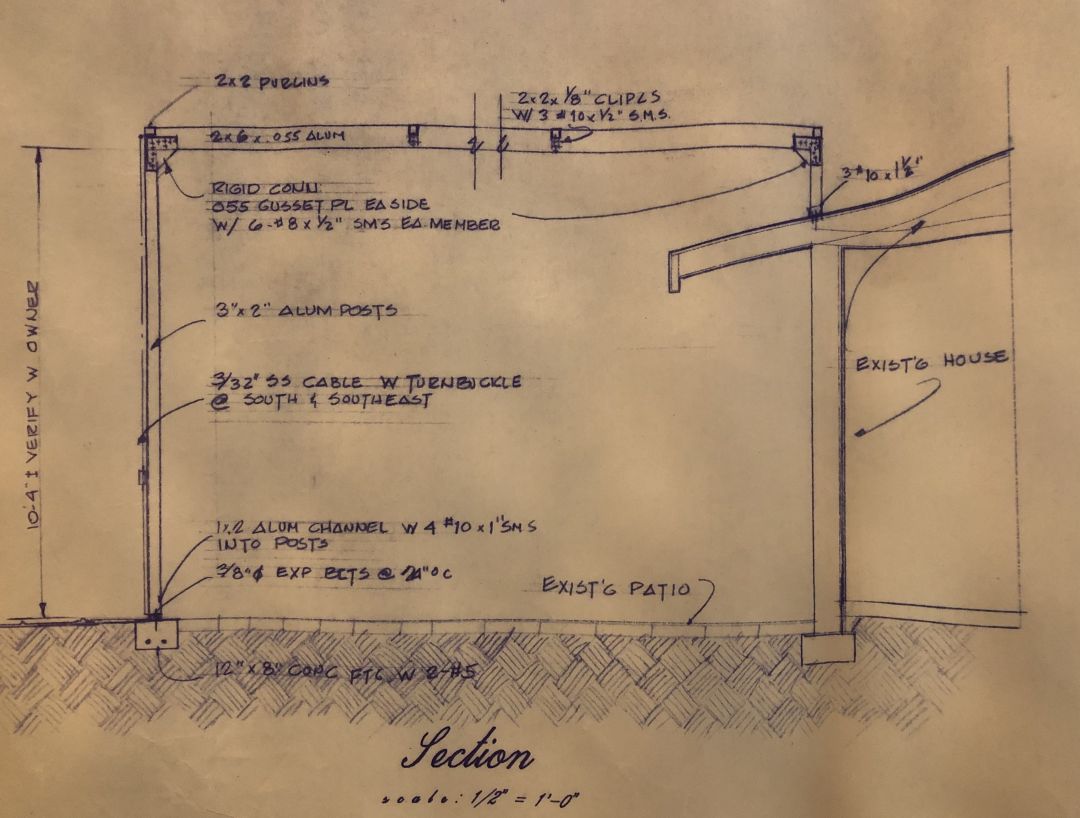 2x2 PURLINS
2x2x 1/8" CLIPLS
W/ 3 #10 x 1/2" S.M.S.
2x6 x .055 ALUM
3 #10 x 1 1/2"
RIGID CONN.
055 GUSSET PL EA SIDE
W/ 6-#8 x 1/2" SMS EA MEMBER
3"x 2" ALUM POSTS
10'-4" ± VERIFY W OWNER
EXIST'G HOUSE
3/32" SS CABLE W TURNBUCKLE
@ SOUTH & SOUTHEAST
1x2 ALUM CHANNEL W 4 #10 x 1" SMS
INTO POSTS
3/8"φ EXP BLTS @ 24" OC
EXIST'G PATIO
12" x 8" CONC FTG W 2-#5
Section
scale: 1/2" = 1'-0"